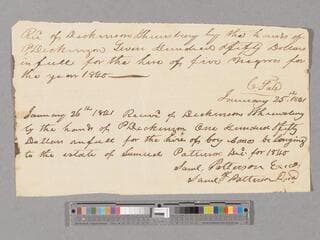 Rec. of Dickinson Shrewsbury by the hands of
P Dickinson Seven Hundred & fifty Dollars
in full for the hire of five Negros for
the year 1840
January 25th 1841
January 26th 1841 Recvd. of Dickinson Shrewsbury
by the hands of P Dickinson One Hundred & fifty
Dollars in full for the hire of boy belonging
to the estate of Samuel Patterson for 1840
Saml. Patterson
Saml. Patterson